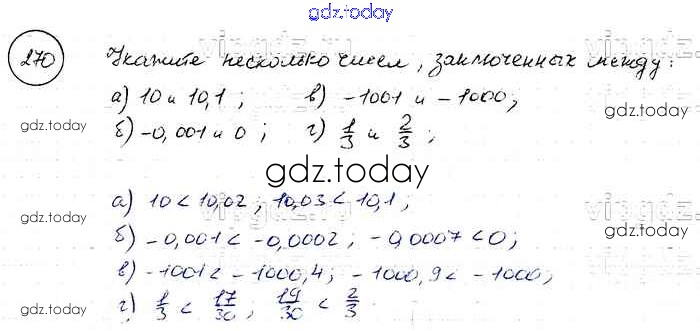 gdz.today
270 Укажите несколько чисел, заключенных между:
а) 10 и 10,1; в) -1001 и -1000;
gdz.today gdz.today
б) -0,001 и 0; г) 1/3 и 2/3;
gdz.today gdz.today
gdz.today
а) 10 < 10,02; 10,03 < 10,1;
gdz.today gdz.today
б) -0,001 < -0,0002; -0,0007 < 0;
в) -1001 < -1000,4; -1000,9 < -1000;
г) 1/3 < 17/30; 19/30 < 2/3
gdz.today gdz.today